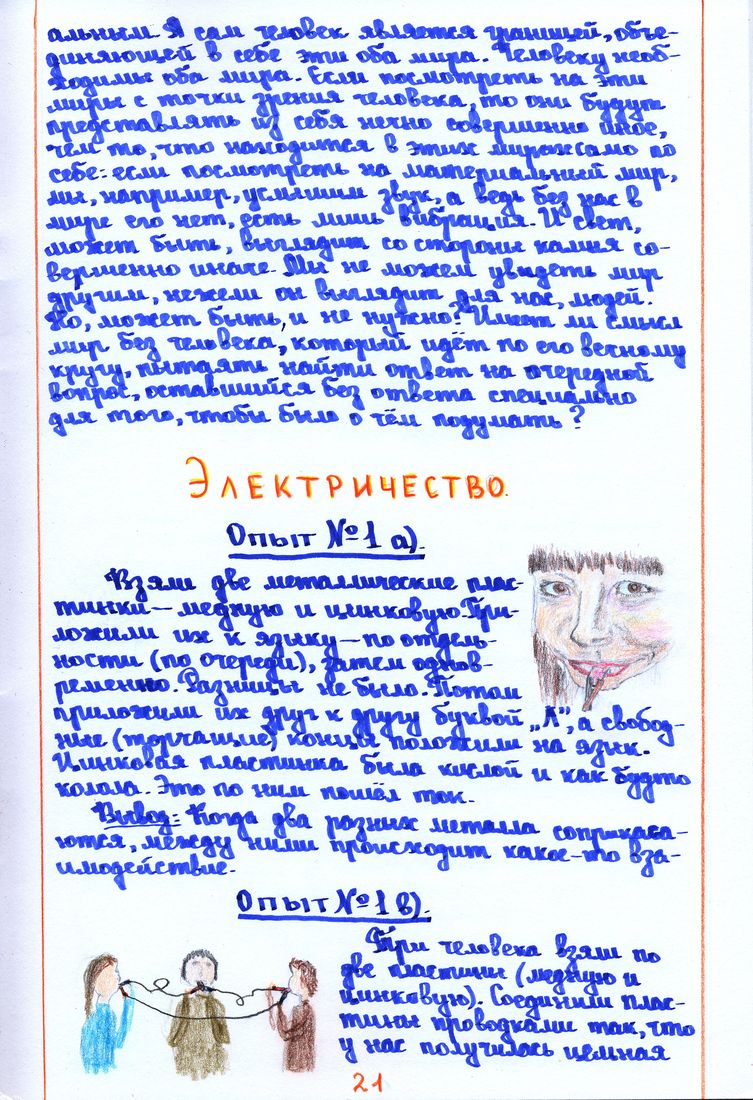 альным. Я сам человек является границей, объе-
диняющей в себе эти оба мира. Человеку необ-
ходимы оба мира. Если посмотреть на эти
миры с точки зрения человека, то они будут
представлять из себя нечно совершенно иное,
чем то, что находится в этих мирах само по
себе: если посмотреть на материальный мир,
мы, например, услышим звук, а ведь без нас в
мире его нет, есть лишь вибрация. И свет,
может быть, выглядит со стороны камня со-
вершенно иначе. Мы не можем увидеть мир
другим, нежели он выглядит для нас, людей.
Но, может быть, и не нужно? Имеет ли смысл
мир без человека, который идёт по его вечному
кругу, пытаять найти ответ на очередной
вопрос, оставшийся без ответа специально
для того, чтобы было о чём подумать?
Электричество.
Опыт №1 а).
Взяли две металлические плас-
тинки — медную и цинковую. При-
ложили их к языку — по отдель-
ности (по очереди), затем однов-
ременно. Разницы не было. Потом
приложили их друг к другу буквой „Л", а свобод-
ные (торчащие) концы положили на язык.
Цинковая пластинка была кислой и как будто
колола. Это по ним пошёл ток.
Вывод: Когда два разных металла соприкаса-
ются, между ними происходит какое-то вза-
имодействие.
Опыт №1 в).
Три человека взяли по
две пластины (медную и
цинковую). Соединили плас-
тины проводками так, что
у нас получилась цепная
21